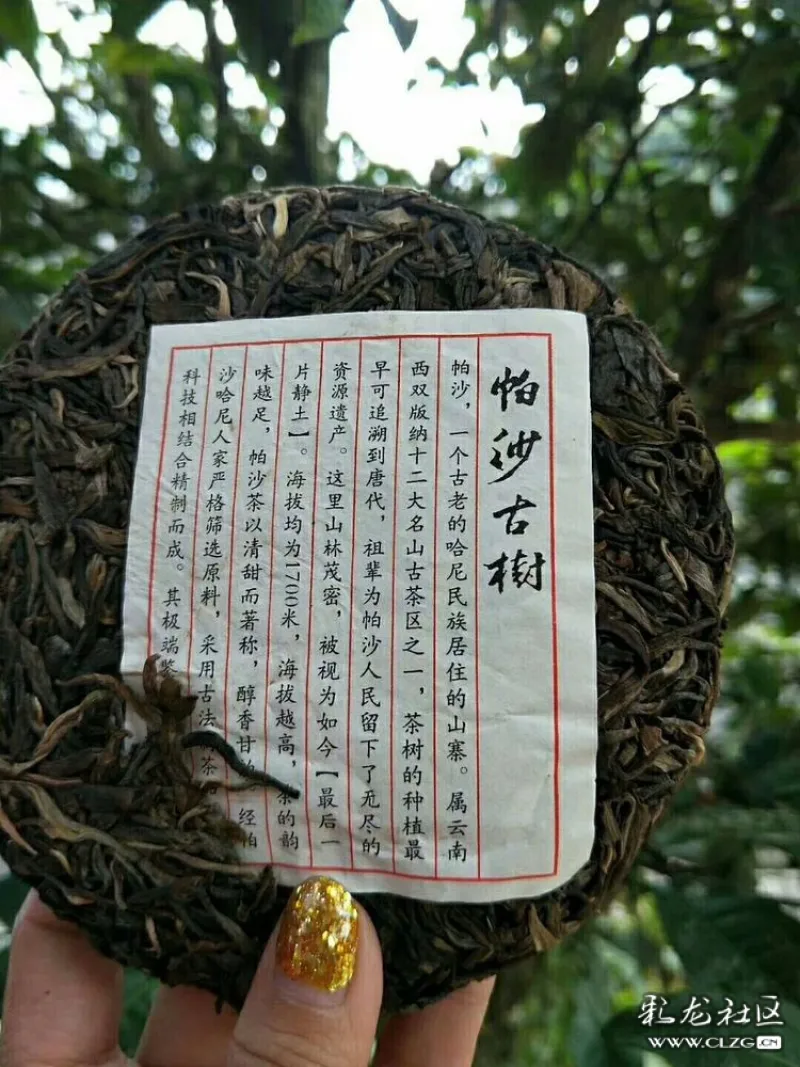 帕沙古樹
帕沙，一个古老的哈尼民族居住的山寨。属云南
西双版纳十二大名山古茶区之一，茶树的种植最
早可追溯到唐代，祖辈为帕沙人民留下了无尽的
资源遗产。这里山林茂密，被视为如今【最后一
片静土】。海拔均为1700米，海拔越高，茶的韵
味越足，帕沙茶以清甜而著称，醇香甘 经帕
沙哈尼人家严格筛选原料，采用古法 茶
科技相结合精制而成。其极端鉴
彩龙社区
WWW.CLZG.CN